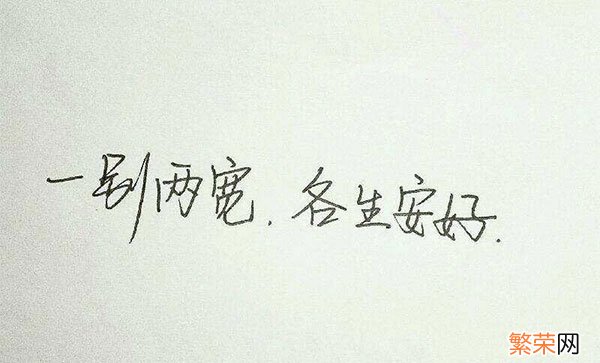 一别两宽.各生安好.
繁荣网